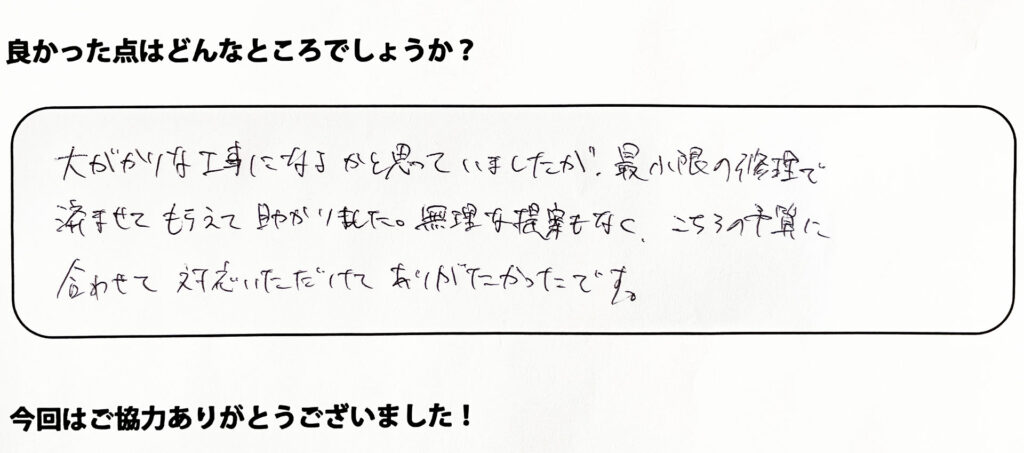 良かった点はどんなところでしょうか？
大がかりな工事になるかと思っていましたが、最小限の修理で
済ませてもらえて助かりました。無理な提案もなく、こちらの予算に
合わせて対応いただけてありがたかったです。
今回はご協力ありがとうございました！